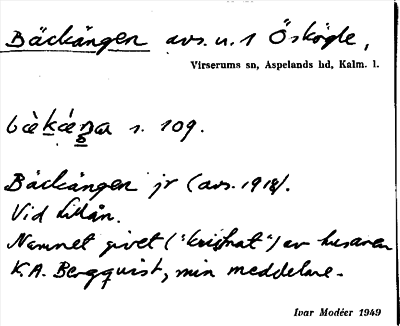 Bäckängen avs. u. 1 Öskögle,
Virserums sn, Aspelands hd, Kalm. l.
s. 109.
Bäckängen jr (avs. 1918).
Vid lillån.
Namnet givet ("kristnat") av husaren
K.A. Bergquist, min meddelare.
Ivar Modéer 1949